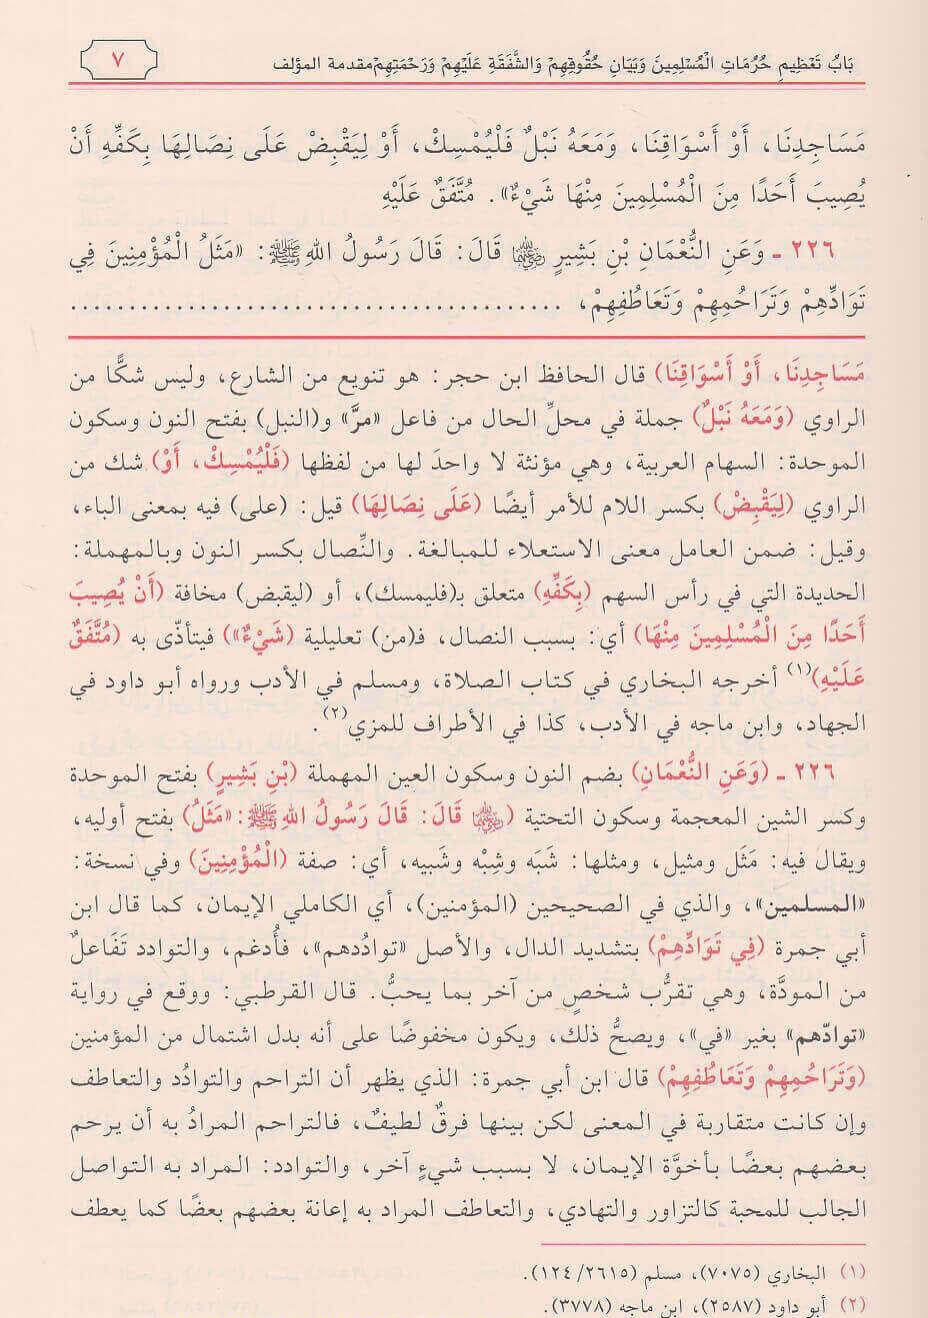 بَابُ تَعْظِيمِ حُرُمَاتِ الْمُسْلِمِينَ وَبَيَانِ حُقُوقِهِمْ وَالشَّفَقَةِ عَلَيْهِمْ وَرَحْمَتِهِمْ مقدمة المؤلف ٧
مَسَاجِدِنَا، أَوْ أَسْوَاقِنَا، وَمَعَهُ نَبْلٌ فَلْيُمْسِكْ، أَوْ لِيَقْبِضْ عَلَى نِصَالِهَا بِكَفِّهِ أَنْ
يُصِيبَ أَحَدًا مِنَ الْمُسْلِمِينَ مِنْهَا شَيْءٌ». مُتَّفَقٌ عَلَيْهِ
٢٢٦ ـ وَعَنِ النُّعْمَانِ بْنِ بَشِيرٍ رضي الله عنهما قَالَ: قَالَ رَسُولُ اللهِ ﷺ: «مَثَلُ الْمُؤْمِنِينَ فِي
تَوَادِّهِمْ وَتَرَاحُمِهِمْ وَتَعَاطُفِهِمْ، ........................................
مَسَاجِدِنَا، أَوْ أَسْوَاقِنَا) قال الحافظ ابن حجر: هو تنويع من الشارع، وليس شكًّا من
الراوي (وَمَعَهُ نَبْلٌ) جملة في محلِّ الحال من فاعل «مرَّ» و(النبل) بفتح النون وسكون
الموحدة: السهام العربية، وهي مؤنثة لا واحدَ لها من لفظها (فَلْيُمْسِكْ، أَوْ) شك من
الراوي (لِيَقْبِضْ) بكسر اللام للأمر أيضًا (عَلَى نِصَالِهَا) قيل: (على) فيه بمعنى الباء،
وقيل: ضمن العامل معنى الاستعلاء للمبالغة. والنِّصال بكسر النون وبالمهملة:
الحديدة التي في رأس السهم (بِكَفِّهِ) متعلق بـ(فليمسك)، أو (ليقبض) مخافة (أَنْ يُصِيبَ
أَحَدًا مِنَ الْمُسْلِمِينَ مِنْهَا) أي: بسبب النصال، فـ(من) تعليلية (شَيْءٌ») فيتأذّى به (مُتَّفَقٌ
عَلَيْهِ)(١) أخرجه البخاري في كتاب الصلاة، ومسلم في الأدب ورواه أبو داود في
الجهاد، وابن ماجه في الأدب، كذا في الأطراف للمزي(٢).
٢٢٦ ـ (وَعَنِ النُّعْمَانِ) بضم النون وسكون العين المهملة (بْنِ بَشِيرٍ) بفتح الموحدة
وكسر الشين المعجمة وسكون التحتية (رضي الله عنهما قَالَ: قَالَ رَسُولُ اللهِ ﷺ: «مَثَلُ) بفتح أوليه،
ويقال فيه: مَثَل ومثيل، ومثلها: شَبَه وشِبْه وشَبيه، أي: صفة (الْمُؤْمِنِينَ) وفي نسخة:
«المسلمين»، والذي في الصحيحين (المؤمنين)، أي الكاملي الإيمان، كما قال ابن
أبي جمرة (فِي تَوَادِّهِمْ) بتشديد الدال، والأصل «توادُدهم»، فأُدغم، والتوادد تَفَاعلٌ
من المودَّة، وهي تقرُّب شخصٍ من آخر بما يحبُّ. قال القرطبي: ووقع في رواية
«توادّهم» بغير «في»، ويصحُّ ذلك، ويكون مخفوضًا على أنه بدل اشتمال من المؤمنين
(وَتَرَاحُمِهِمْ وَتَعَاطُفِهِمْ) قال ابن أبي جمرة: الذي يظهر أن التراحم والتوادُد والتعاطف
وإن كانت متقاربة في المعنى لكن بينها فرقٌ لطيفٌ، فالتراحم المرادُ به أن يرحم
بعضهم بعضًا بأخوَّة الإيمان، لا بسبب شيءٍ آخر، والتوادد: المراد به التواصل
الجالب للمحبة كالتزاور والتهادي، والتعاطف المراد به إعانة بعضهم بعضًا كما يعطف
(١) البخاري (٧٠٧٥)، مسلم (١٢٤/٢٦١٥).
(٢) أبو داود (٢٥٨٧)، ابن ماجه (٣٧٧٨).